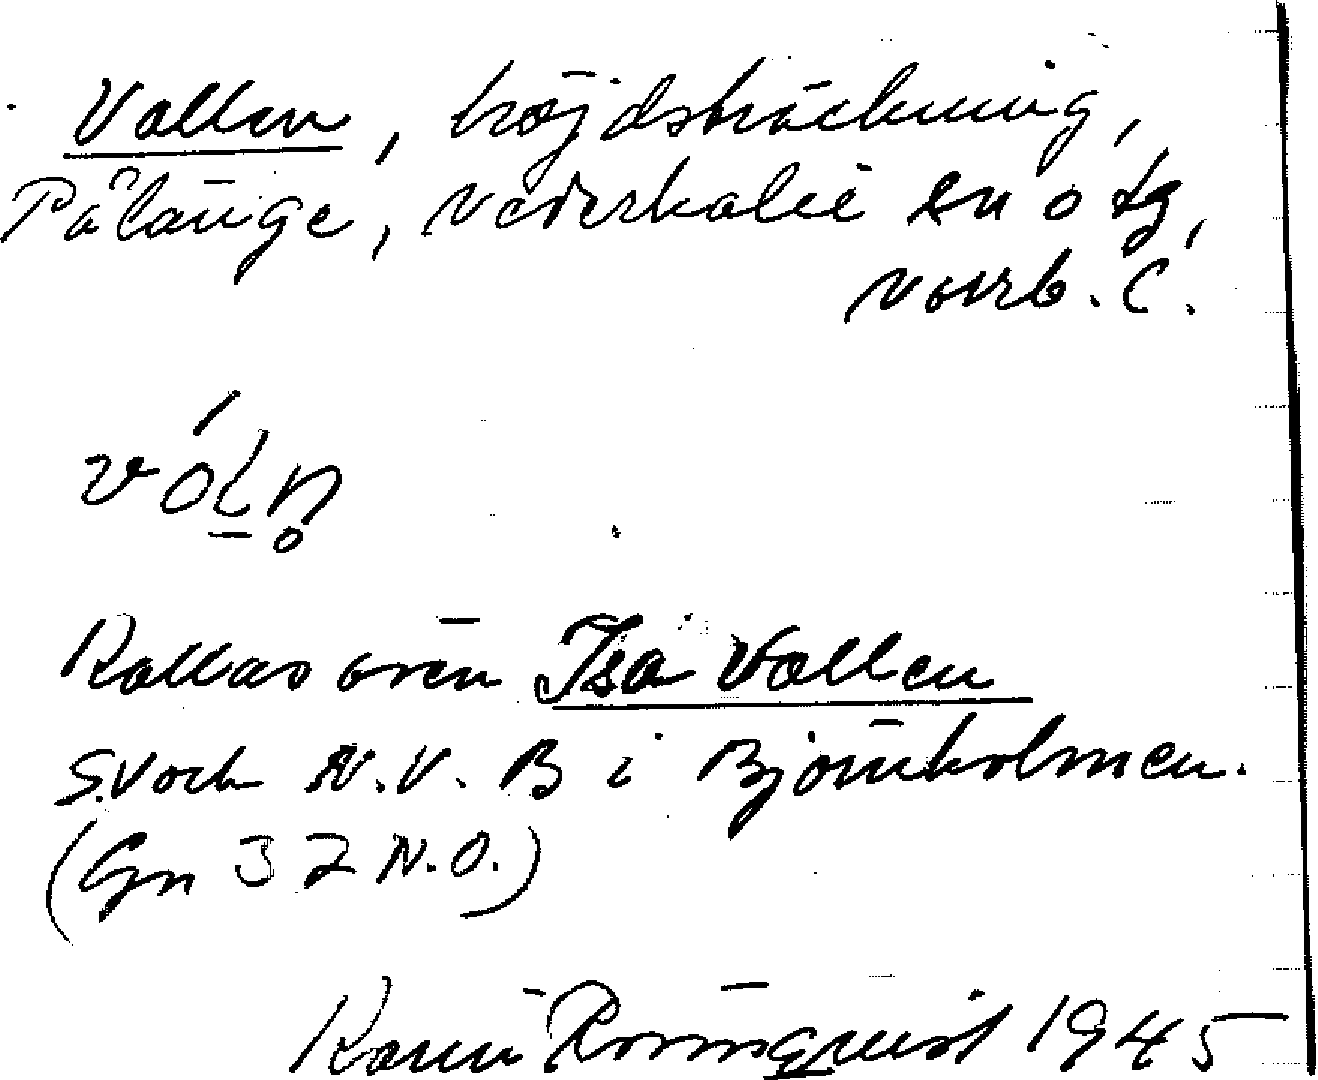 Vallen, höjdsträckning,
Pålänge, Nederkalix sn o tg,
Norrb. l.
vóḷn̥
Kallas även Isa Vallen
S.V och N.V. B i Björnholmen.
(Gn 37 N.O.)
Karin Rönnquist 1945